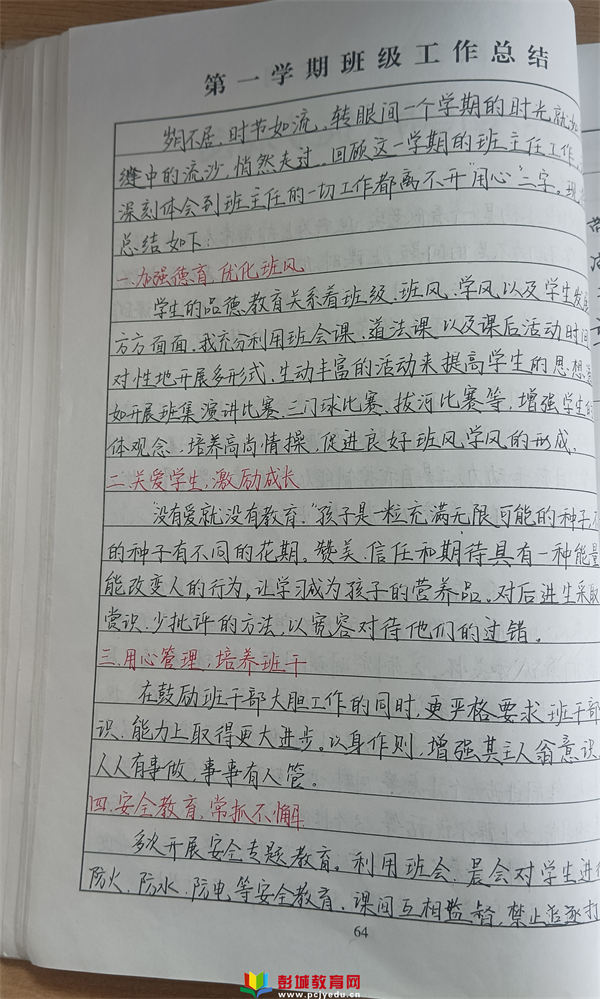 第一学期班级工作总结
岁月不居,时节如流,转眼间一个学期的时光就如
缝中的流沙,悄然走过,回顾这一学期的班主任工作,
深刻体会到班主任的一切工作都离不开"用心"二字。现
总结如下:
一.加强德育,优化班风
学生的品德教育关系着班级、班风、学风以及学生发展
方方面面,我充分利用班会课、道法课以及课后活动时间
对性地开展多形式、生动丰富的活动来提高学生的思想
如开展班集演讲比赛、三门球比赛、拔河比赛等,增强学生的
体观念,培养高尚情操,促进良好班风学风的形成.
二.关爱学生,激励成长
"没有爱就没有教育."孩子是一粒充满无限可能的种子,不
的种子有不同的花期。赞美、信任和期待具有一种能量
能改变人的行为,让学习成为孩子的营养品。对后进生采取
赏识、少批评的方法,以宽容对待他们的过错。
三.用心管理,培养班干
在鼓励班干部大胆工作的同时,更严格要求班干部
识、能力上取得更大进步。以身作则,增强其主人翁意识
人人有事做,事事有人管。
四.安全教育,常抓不懈
多次开展安全专题教育。利用班会、晨会对学生进行
防火、防水、防电等安全教育,课间互相监督,禁止追逐打
64
彭城教育网
www.pcjyedu.cn